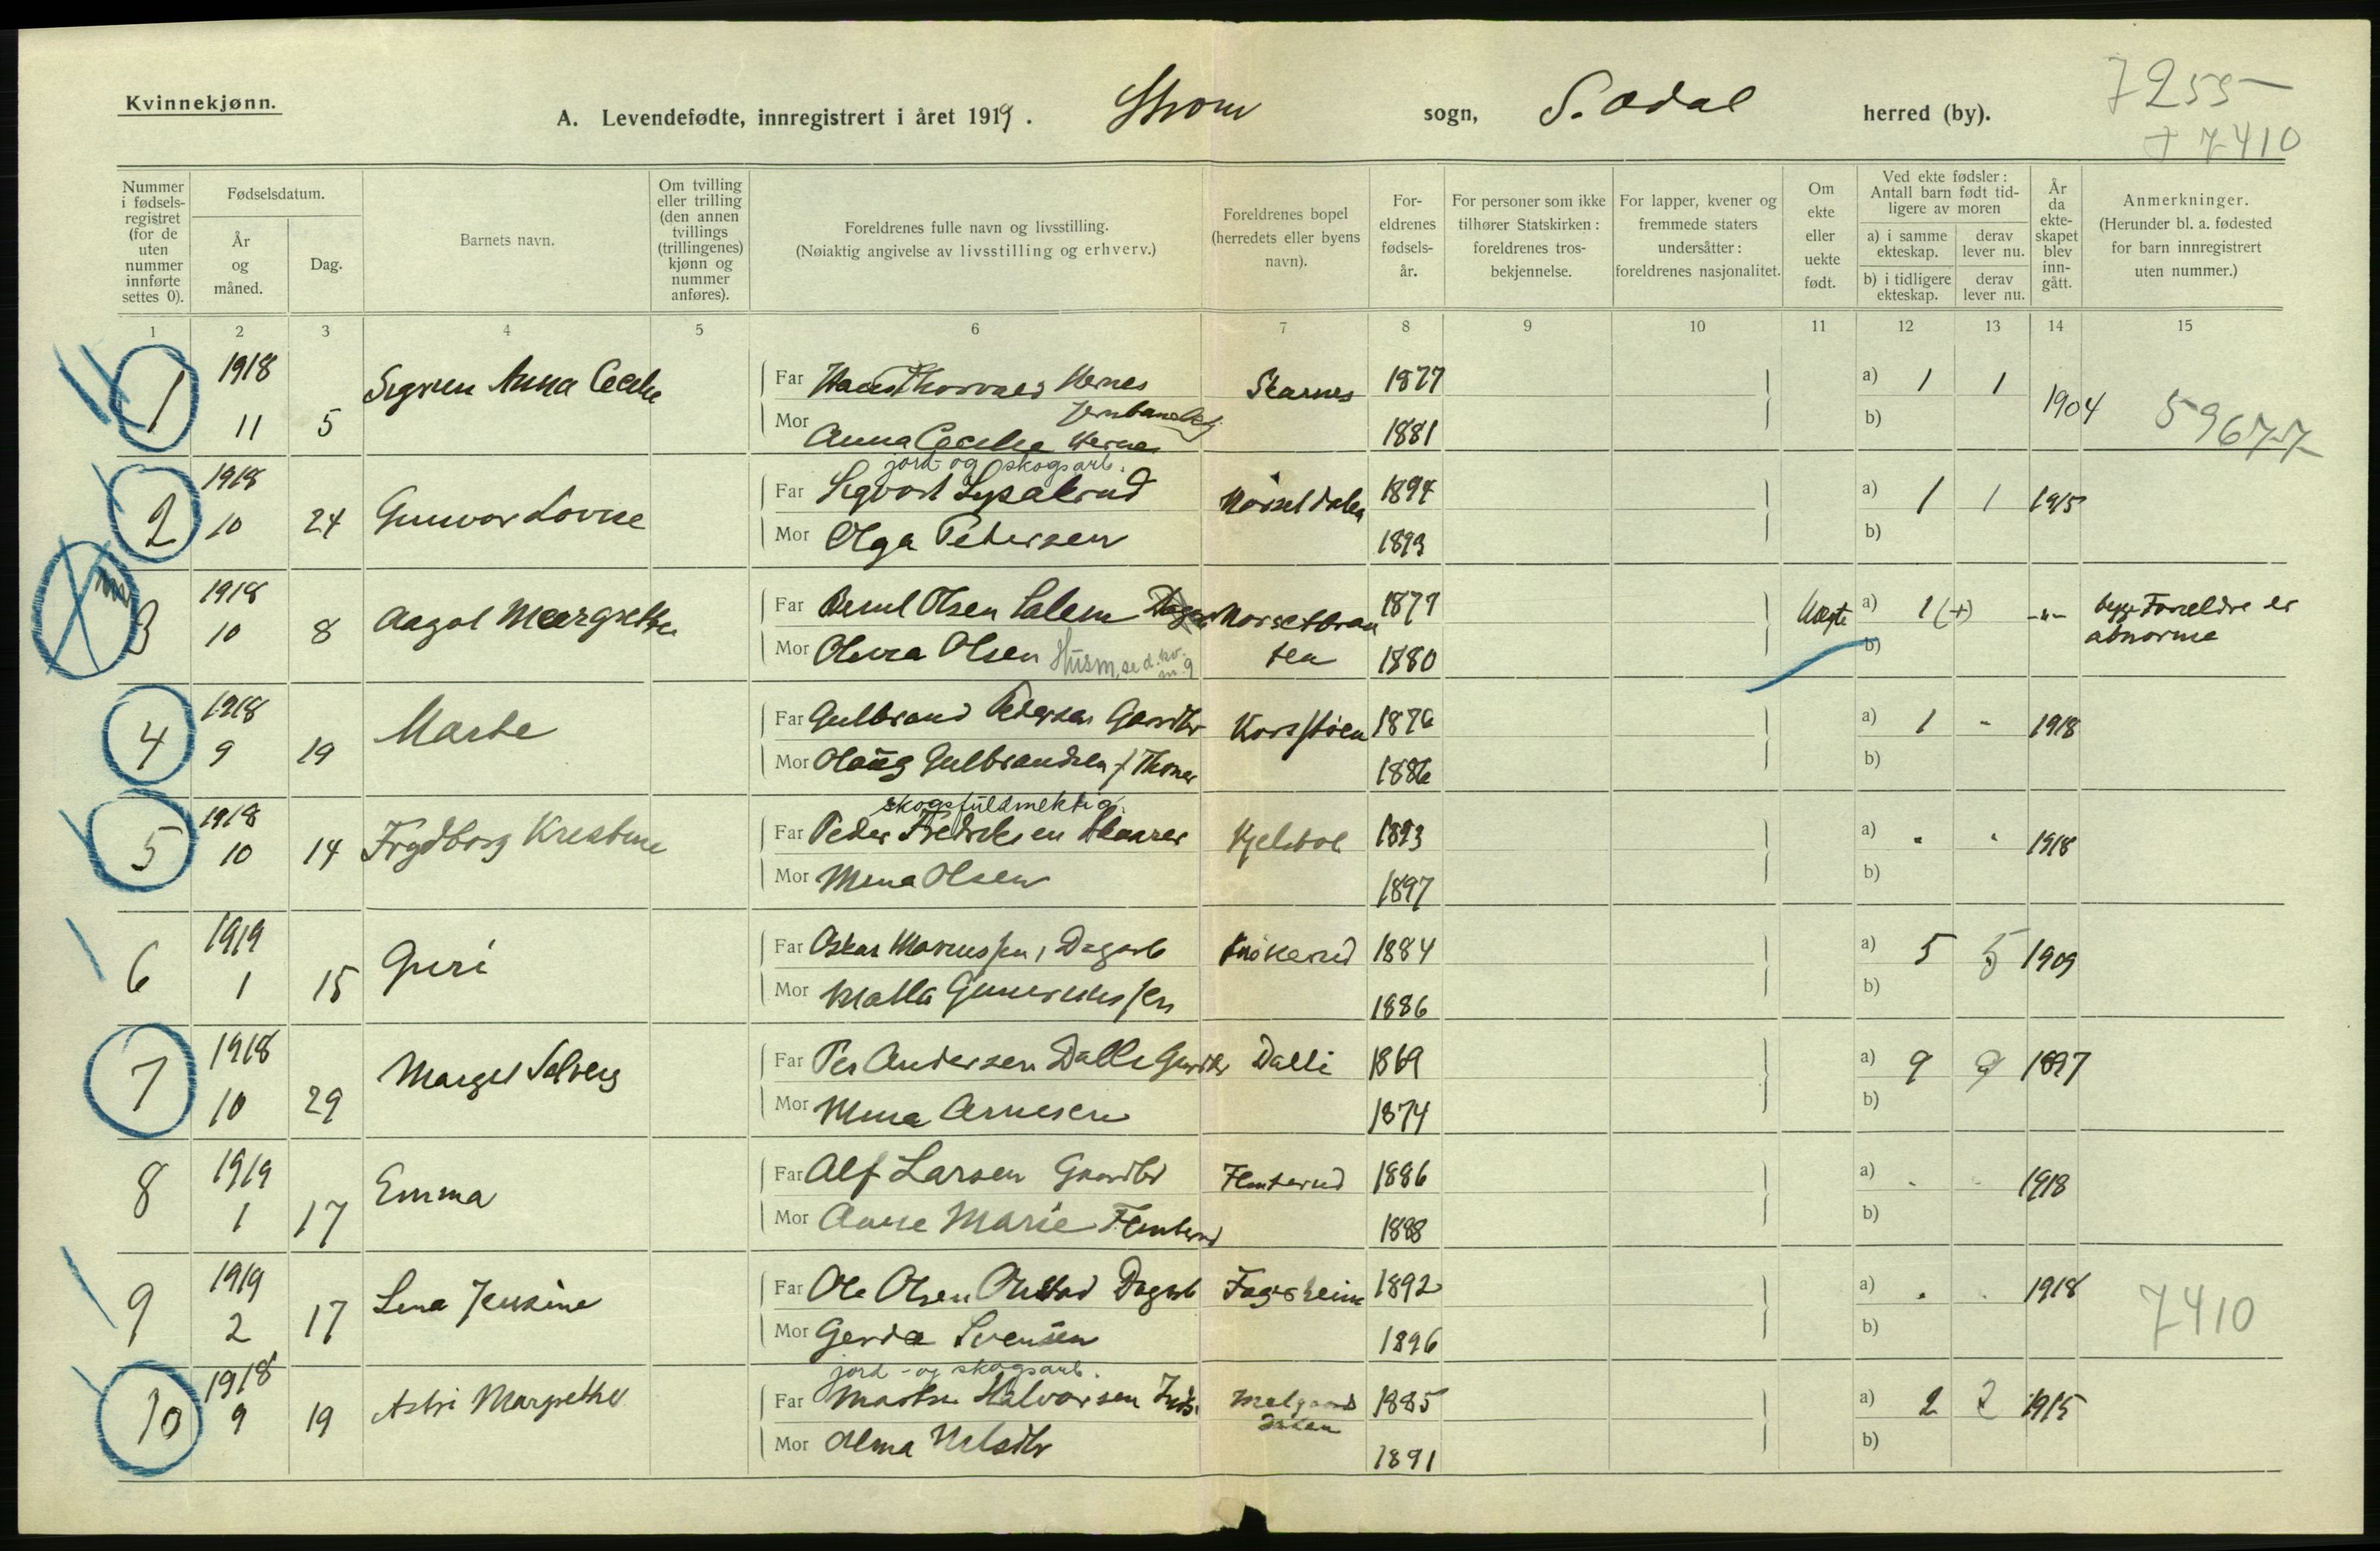 Kvinnekjønn.
A. Levendefødte, innregistrert i året 1919. Strøm sogn, S. Odal herred (by).
7255
+ 7410
Nummer i fødselsregistret (for de uten nummer innførte settes 0).
Fødselsdatum.
År og måned.
Dag.
Barnets navn.
Om tvilling eller trilling (den annen tvillings (trillingenes) kjønn og nummer anføres).
Foreldrenes fulle navn og livsstilling.
(Nøiaktig angivelse av livsstilling og erhverv.)
Foreldrenes bopel (herredets eller byens navn).
Foreldrenes fødselsår.
For personer som ikke tilhører Statskirken: foreldrenes trosbekjennelse.
For lapper, kvener og fremmede staters undersåtter: foreldrenes nasjonalitet.
Om ekte eller uekte født.
Ved ekte fødsler: Antall barn født tidligere av moren
a) i samme ekteskap. derav lever nu.
b) i tidligere ekteskap. derav lever nu.
År da ekteskapet blev inngått.
Anmerkninger.
(Herunder bl. a. fødested for barn innregistrert uten nummer.)
1 2 3 4 5 6 7 8 9 10 11 12 13 14 15
1 1918 11 5 Anna Cecilie
Far Hans Thorvald Hernes Skarnes 1877 a) 1 1 1904
Mor Anna Cecilie Hernes 1881 b)
59677
jord- og skogsarb.
2 1918 10 24 Gunvor Lovise
Far Sigvart 1894 a) 1 1 1915
Mor Olga Petersen 1893 b)
3 1918 10 8 Aagot Margrethe
Far Olsen Salem 1879 Uegte a) 1 (+) -"- begge Foreldre er abnorme
Mor Olsen Husm. 1880 b)
4 1918 9 19 Marte
Far Gulbrand Pedersen Gaardbr 1876 a) 1 - 1918
Mor Olaug Gulbrandsen f. 1886 b)
skogsfuldmektig.
5 1918 10 14 Frydborg Kristine
Far Peder Fredriksen 1893 a) . . 1918
Mor Mina Olsen 1897 b)
6 1919 1 15 Guri
Far Oskar Marcussen, Dagarb 1884 a) 5 5 1909
Mor 1886 b)
7 1918 10 29 Margit Solveig
Far Per Andersen Dalli Gaardbr Dalli 1869 a) 9 9 1897
Mor Mina Arnesen 1874 b)
8 1919 1 17 Emma
Far Alf Larsen Gaardbr Flinterud 1886 a) . . 1918
Mor Anne Marie Flinterud 1888 b)
9 1919 2 17 Lina Jensine
Far Ole Olsen Dagarb Fagerheim 1892 a) . . 1918
Mor Gerda Svensen 1896 b)
7410
jord- og skogsarb.
10 1918 9 19 Astri Margrethe
Far Martin Halvorsen 1885 a) 2 2 1915
Mor Alma 1891 b)